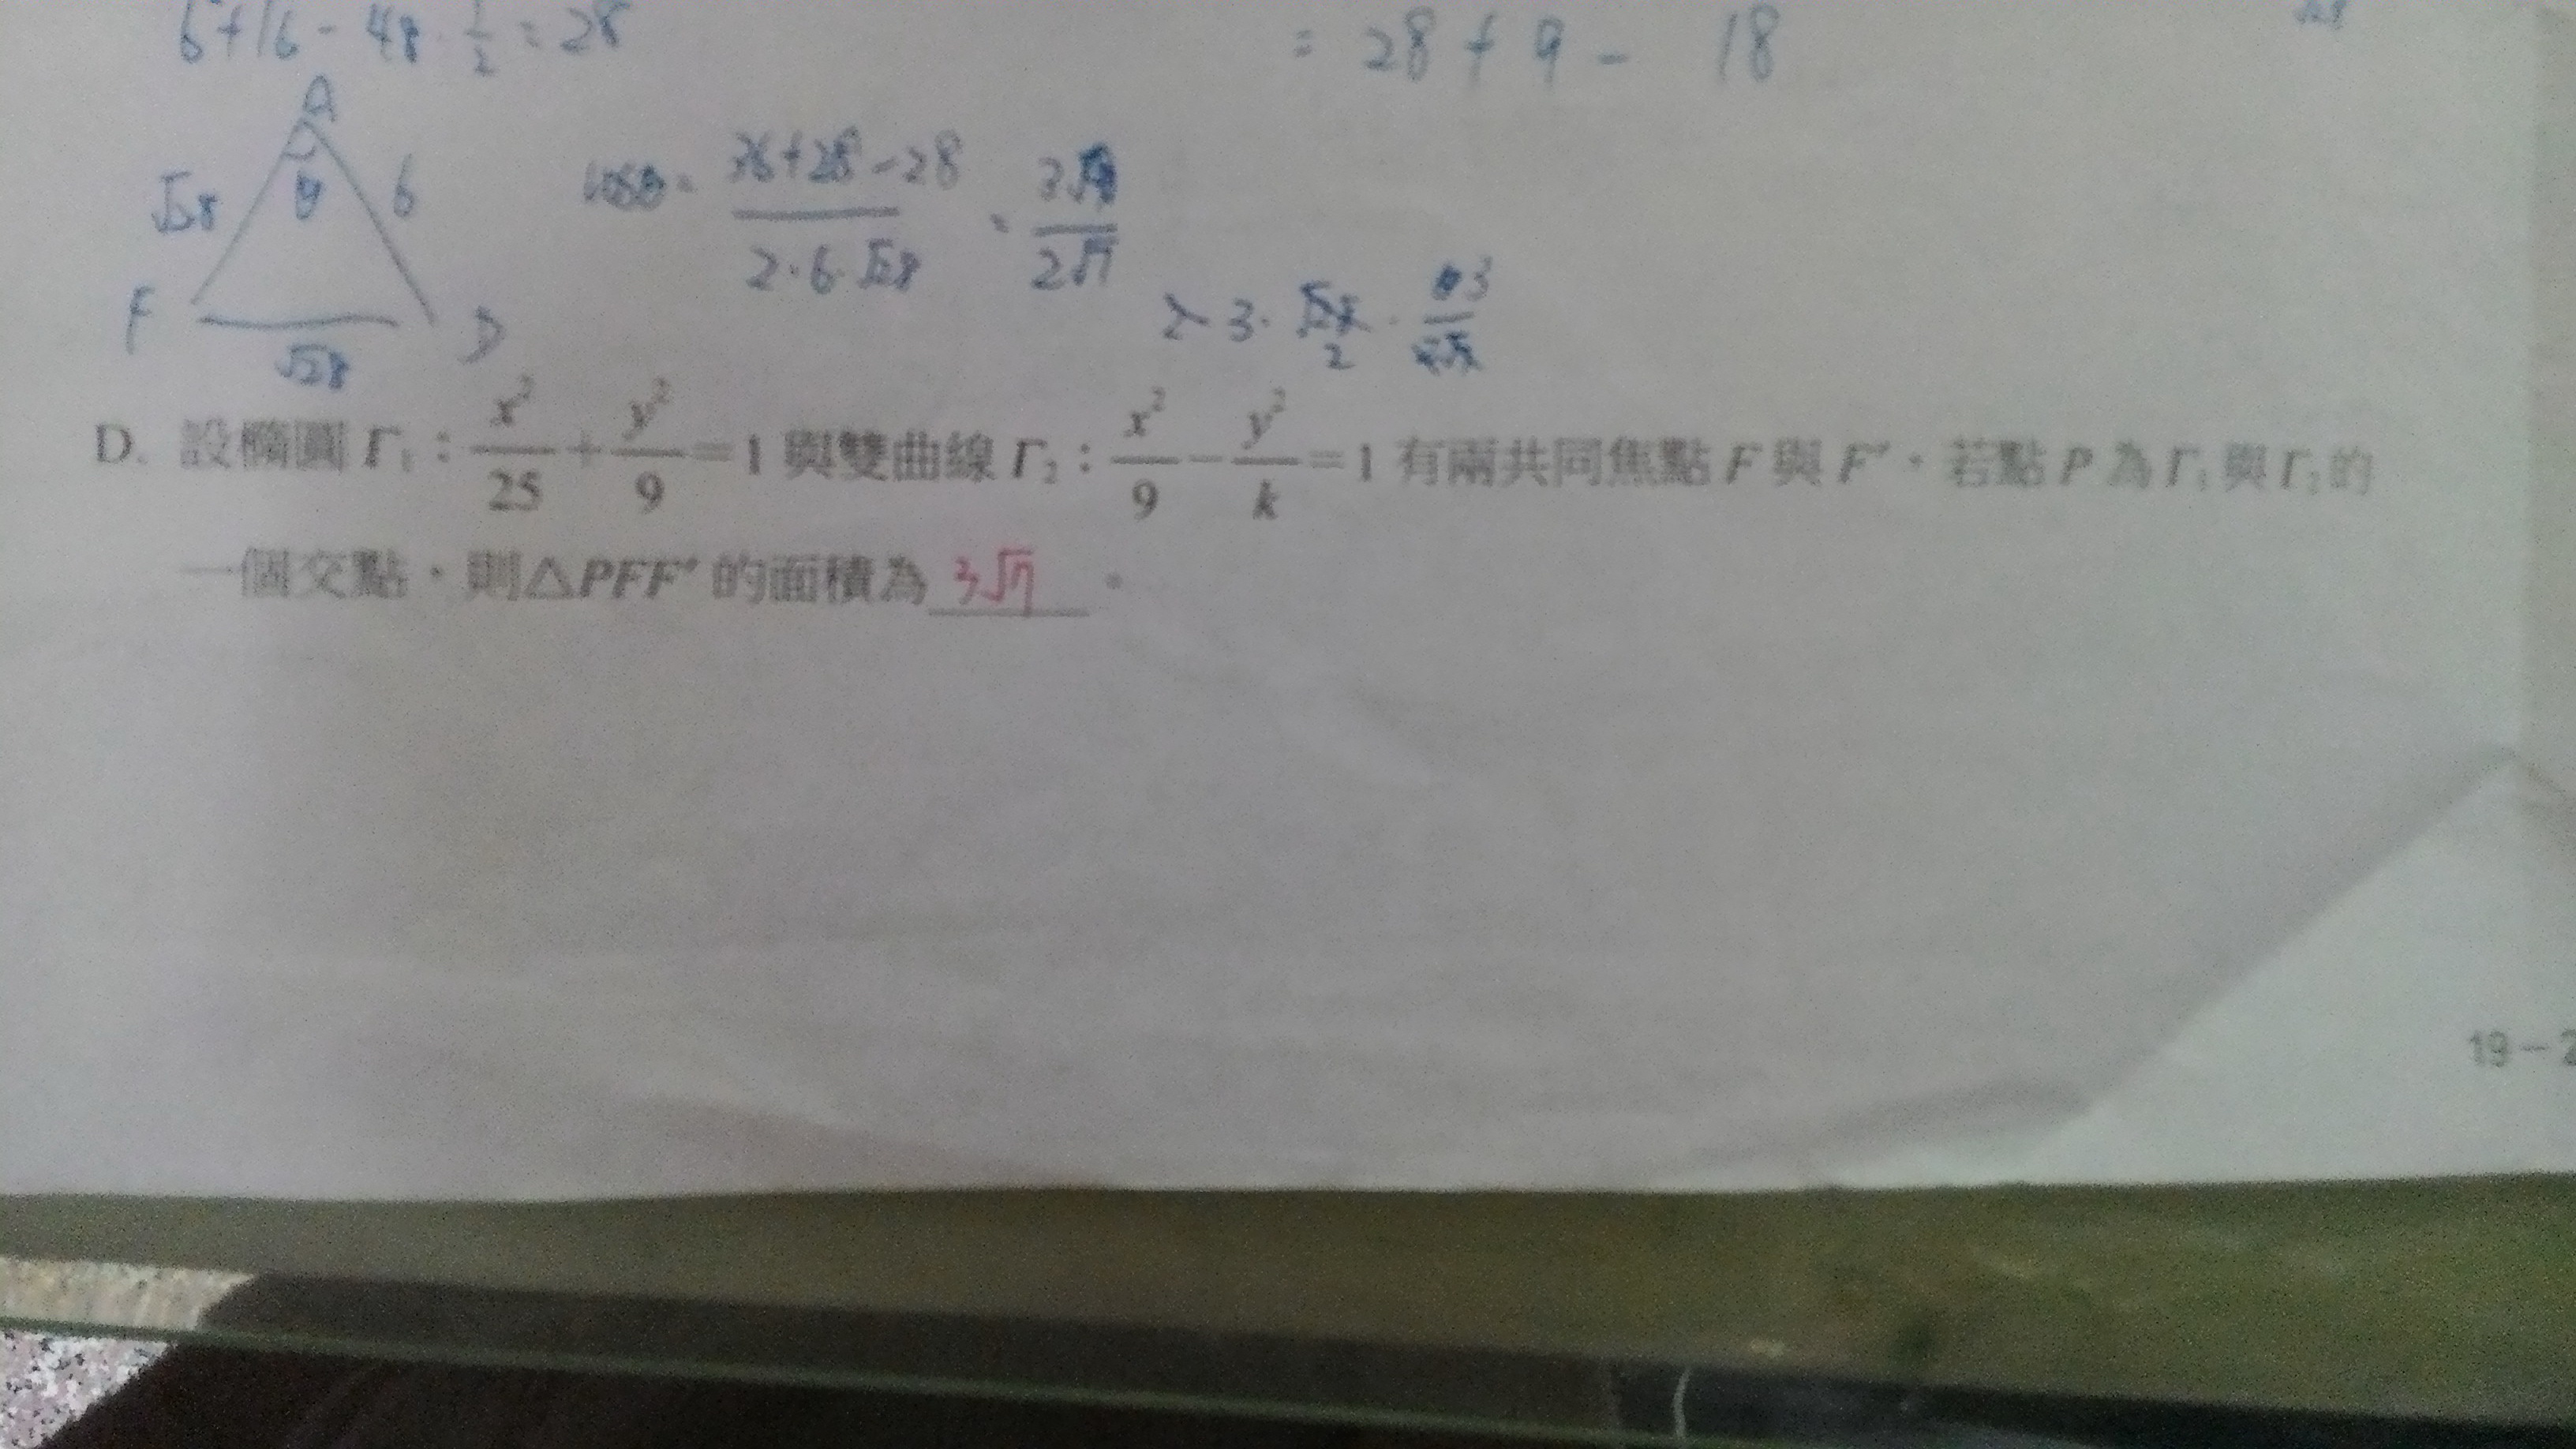 6²+16-48·1/2=28
= 28+9- 18
A
√28 θ 6
F D
√28
cosθ= (36+28-28)/(2·6·√28) = 3/(2√7)
D. 設橢圓 Γ₁：x²/25+y²/9=1 與雙曲線 Γ₂：x²/9-y²/k=1 有兩共同焦點 F 與 F'，若點 P 為 Γ₁ 與 Γ₂ 的
一個交點，則△PFF' 的面積為 3√7 。
19－2